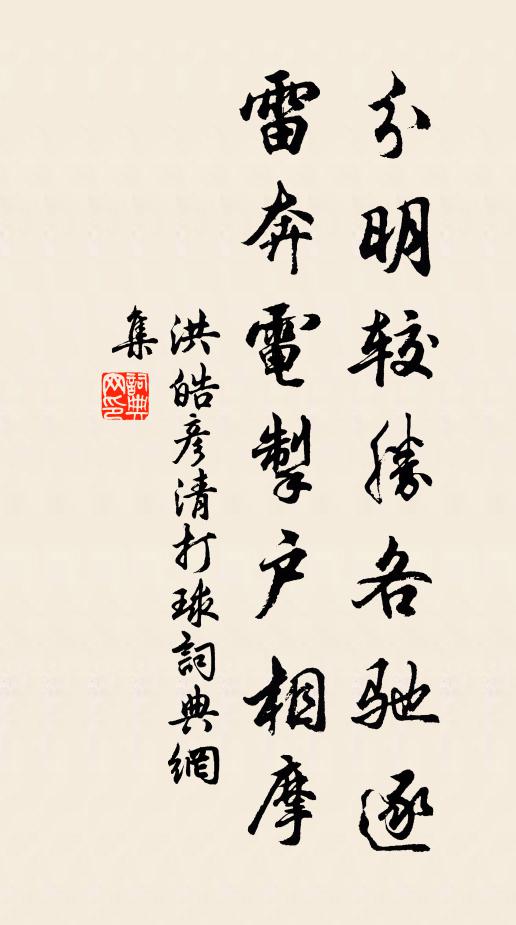 分明较勝各驰逐
雷奔電掣户相摩
洪皓彦清打球詞典網
集
詞典网印